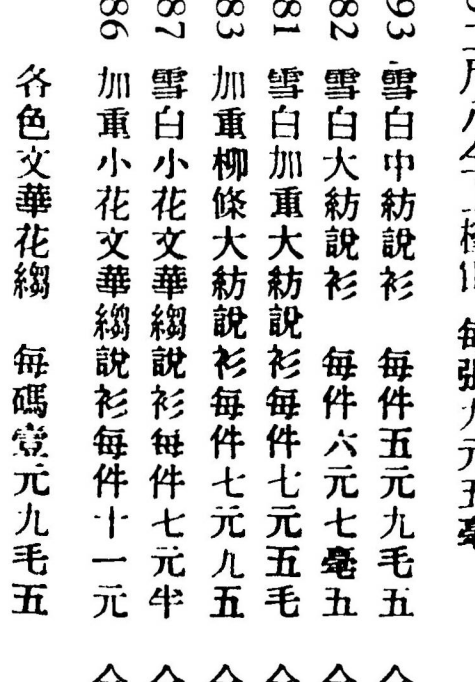 每張九元五毫
93 雪白中紡說衫 每件五元九毛五
82 雪白大紡說衫 每件六元七毫五
81 雪白加重大紡說衫每件七元五毛
83 加重柳條大紡說衫每件七元九五
87 雪白小花文華縐說衫每件七元半
86 加重小花文華縐說衫每件十一元
各色文華花縐 每碼壹元九毛五